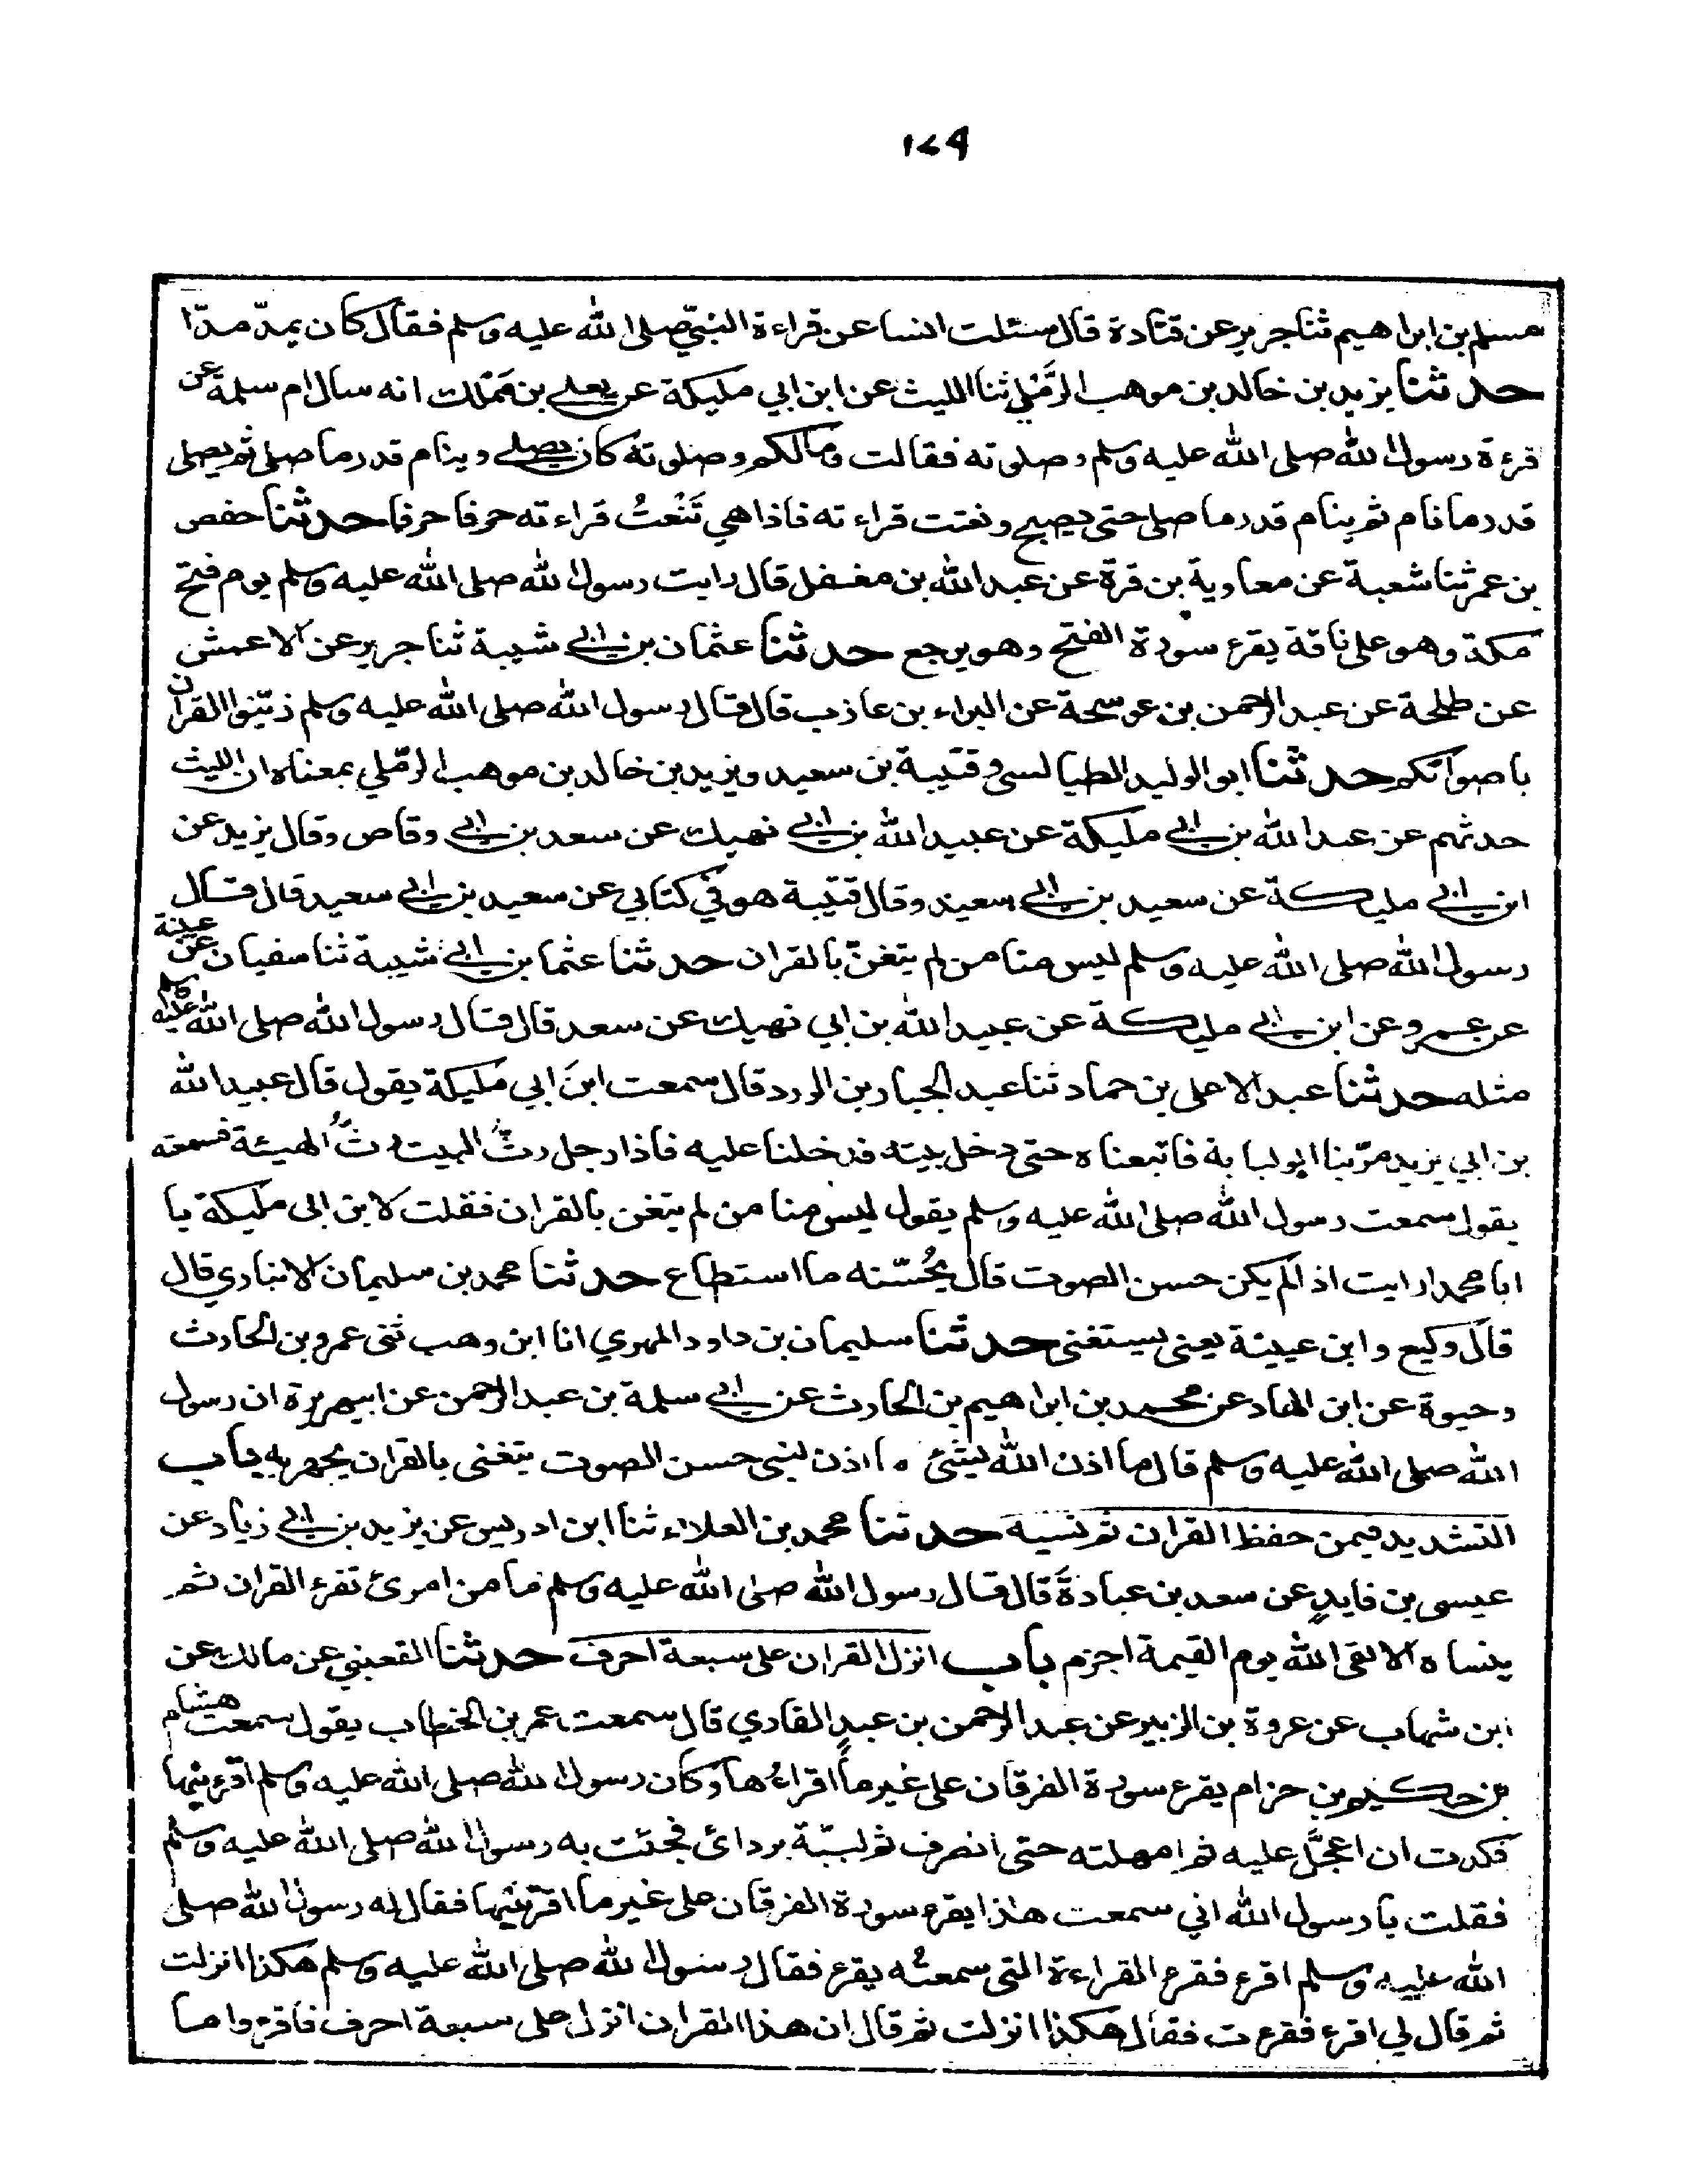 ١٧٩
مسلم بن ابراهيم ثنا جرير عن قتادة قال سئلت انسا عن قراءة النبيّ صلى الله عليه وسلم فقال كان يمدّ مدّا
حدثنا يزيد بن خالد بن موهب الرَّمْلي ثنا الليث عن ابن ابي مليكة عن يعلى بن مَمْلك انه سال ام سلمة عن
قرءة رسول الله صلى الله عليه وسلم وصلوته فقالت ومالكم وصلوته كان يصلى وينام قدر ما صلى ثم يصلى
قدر ما نام ثم ينام قدر ما صلى حتى يصبح ونعتت قراءته فاذا هي تَنْعتُ قراءته حرفا حرفا حدثنا حفص
بن عمر ثنا شعبة عن معاوية بن قرة عن عبد الله بن مغفل قال رايت رسول الله صلى الله عليه وسلم يوم فتح
مكة وهو على ناقة يقرء سورة الفتح وهو يرجع حدثنا عثمان بن ابي شيبة ثنا جرير عن الاعمش
عن طلحة عن عبد الرحمن بن عوسجة عن البراء بن عازب قال قال رسول الله صلى الله عليه وسلم زيّنوا القران
باصواتكم حدثنا ابو الوليد الطيالسى وقتيبة بن سعيد ويزيد بن خالد بن موهب الرمّلي بمعناه ان الليث
حدثهم عن عبد الله بن ابي مليكة عن عبيد الله بن ابي نهيك عن سعد بن ابي وقاص وقال يزيد عن
ابن ابي مليكة عن سعيد بن ابي سعيد وقال قتيبة هو في كتابي عن سعيد بن ابي سعيد قال قال
رسول الله صلى الله عليه وسلم ليس منا من لم يتغنّ بالقران حدثنا عثما بن ابي شيبة ثنا سفيان بن عيينة
عن عمرو عن ابن ابي مليكة عن عبيد الله بن ابي نهيك عن سعد قال قال رسول الله صلى الله عليه وسلم
مثله حدثنا عبد الاعلى بن حماد ثنا عبد الجبار بن الورد قال سمعت ابنَ ابي مليكة يقول قال عبيد الله
بن ابي يزيد مرّ بنا ابو لبابة فاتبعناه حتى دخل بيته فدخلنا عليه فاذا رجل رثّ البيت رثُّ الهيئة فسمعته
يقول سمعت رسول الله صلى الله عليه وسلم يقول ليس منا من لم يتغن بالقران فقلت لابن ابى مليكة يا
ابا محمد ارايت اذا لم يكن حسن الصوت قال يُحسّنه ما استطاع حدثنا محمد بن سليمان الانباري قال
قال وكيع وابن عيينة يعنى يستغنى حدثنا سليمان بن داود المهري انا ابن وهب ثنى عمرو بن الحارث
وحيوة عن ابن الهاد عن محمد بن ابراهيم بن الحارث عن ابي سلمة بن عبد الرحمن عن ابيهريرة ان رسول
الله صلى الله عليه وسلم قال ما اذن الله ليثئ ما اذن لنبى حسن الصوت يتغنى بالقران يجهر به باب
التشديد فيمن حفظ القران ثم نسيه حدثنا محمد بن العلاء ثنا ابن ادريس عن يزيد بن ابي زياد عن
عيسى بن فايدٍ عن سعد بن عبادةَ قال قال رسول الله صلى الله عليه وسلم ما من امرئ تقرء القران ثم
ينساه الا لقى الله يوم القيمة اجزم باب انزل القران على سبعة احرف حدثنا القعنبي عن مالك عن
ابن شهاب عن عروة بن الزبير عن عبد الرحمن بن عبدٍ القاري قال سمعت عمر بن الخطاب يقول سمعت هشام
بن حكيم بن حزام يقرء سورة الفرقان على غير ما اقراءُها وكان رسول الله صلى الله عليه وسلم اقرءنيها
فكدت ان اعجّل عليه ثم امهلته حتى انصرف ثم لببّته بردائ فجئت به رسول الله صلى الله عليه وسلم
فقلت يا رسول الله اني سمعت هذا يقرء سورة الفرقان على غير ما اقرئنيها فقال له رسول الله صلى
الله عليه وسلم اقرء فقرء القراءة التى سمعتُه يقرء فقال رسول الله صلى الله عليه وسلم هكذا انزلت
ثم قال لي اقرء فقرءت فقال هكذا انزلت ثم قال ان هذا القران انزل على سبعة احرف فاقرءوا ما